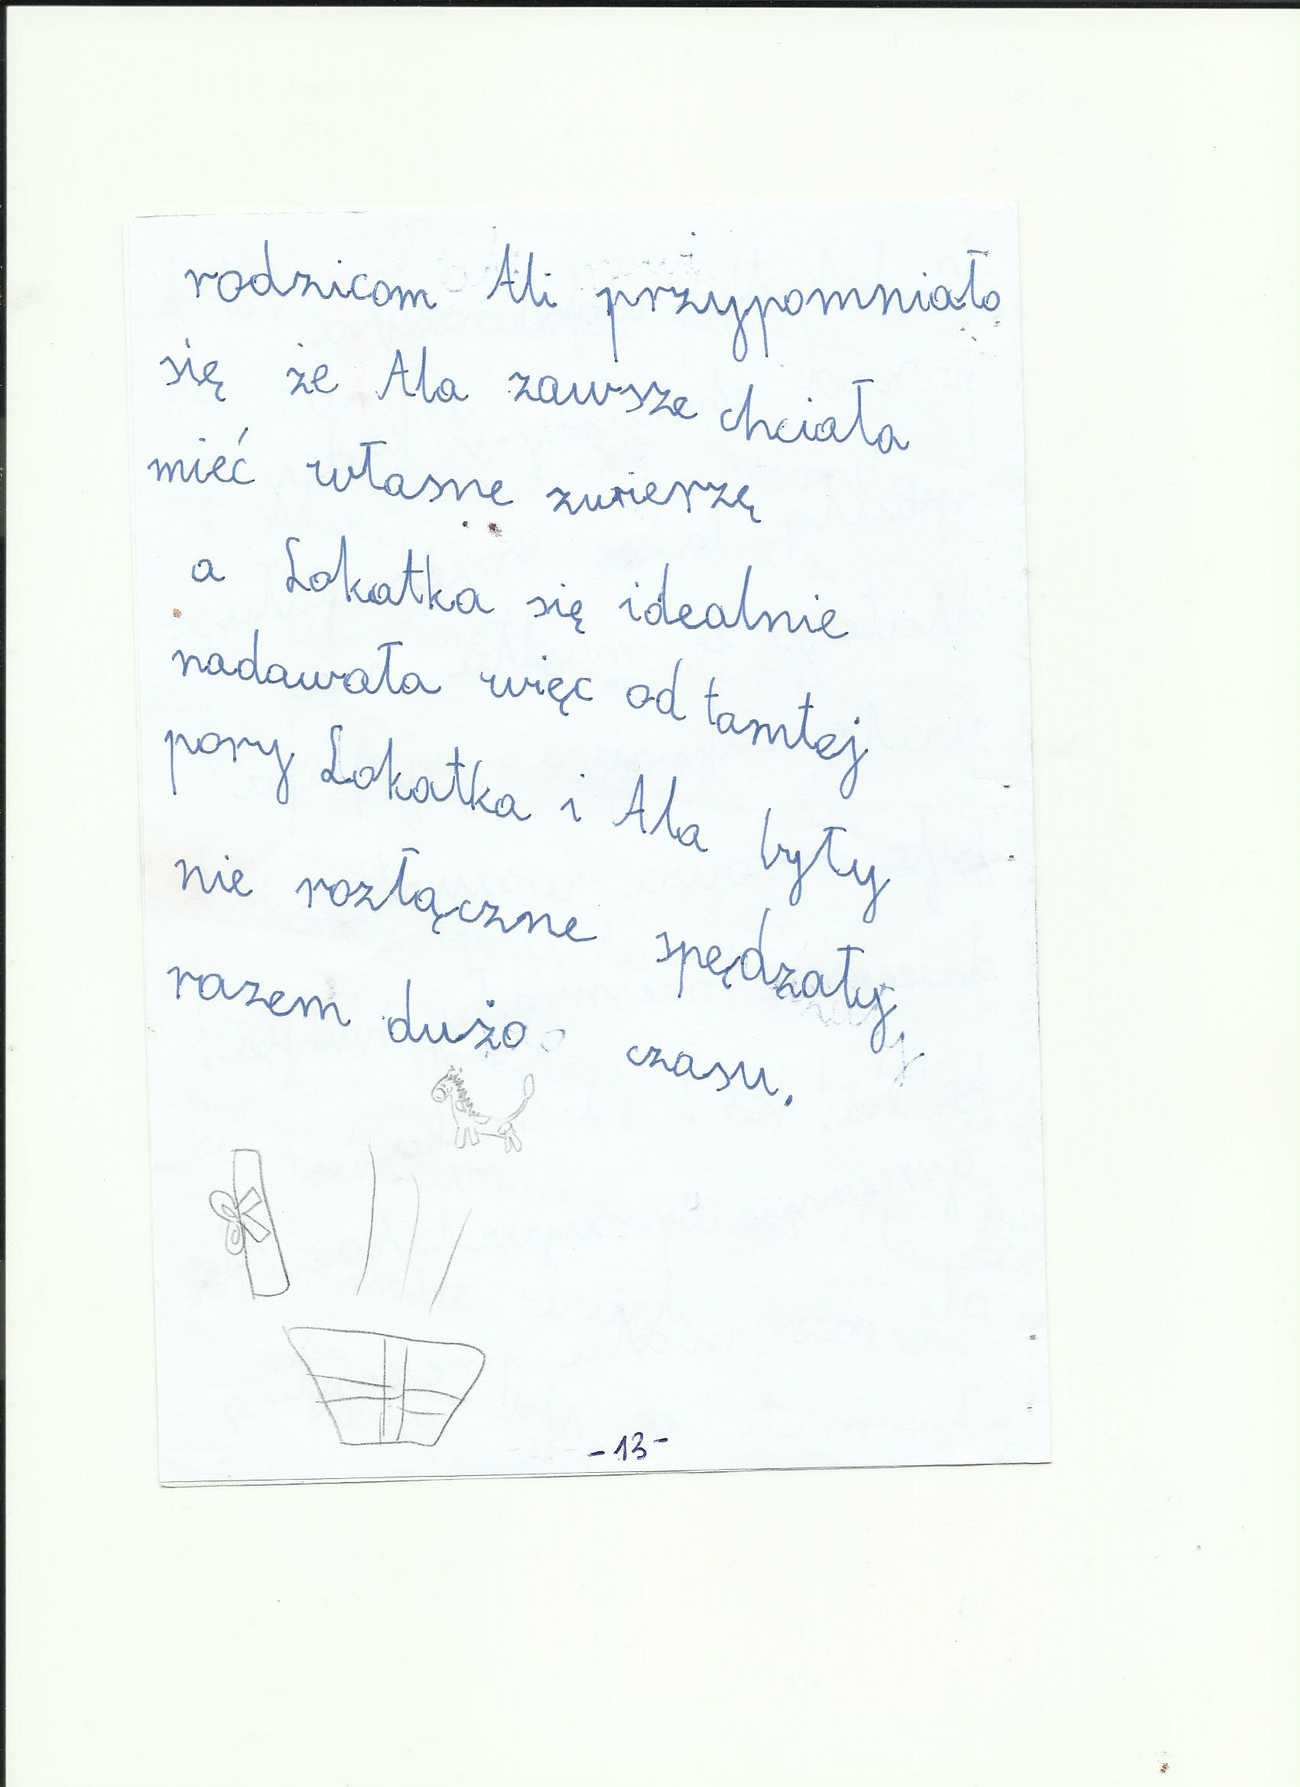 rodzicom Ali przypomniało
się że Ala zawsze chciała
mieć własne zwierzę
a Lokatka się idealnie
nadawała więc od tamtej
pory Lokatka i Ala były
nie rozłączne spędzały
razem dużo czasu.
-13-